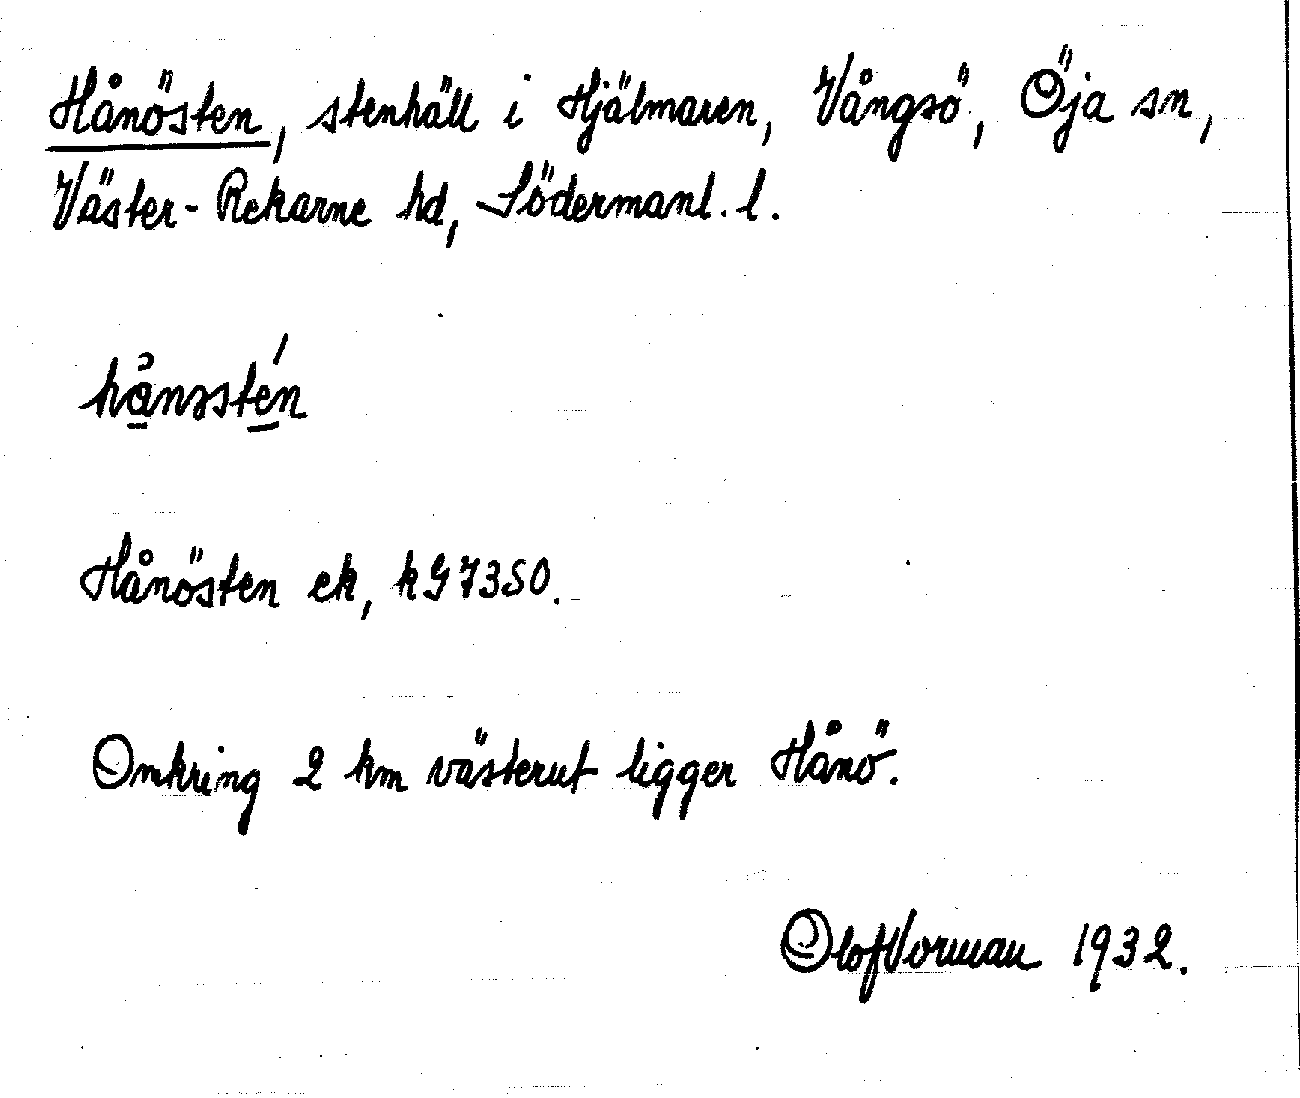 Hånösten, stenhäll i Hjälmaren, Vångsö, Öja sn,
Väster-Rekarne hd, Södermanl. l.
Hånösten ek, kG7350.
Omkring 2 km västerut ligger Hånö.
Olof Vorman 1932.